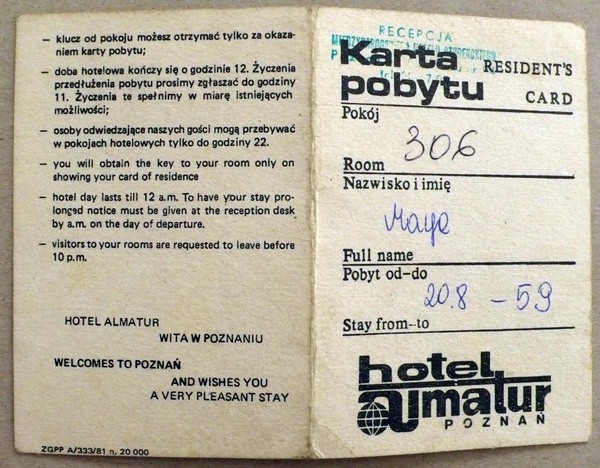 — klucz od pokoju możesz otrzymać tylko za okaza-
niem karty pobytu;
— doba hotelowa kończy się o godzinie 12. Życzenia
przedłużenia pobytu prosimy zgłaszać do godziny
11. Życzenia te spełnimy w miarę istniejących
możliwości;
— osoby odwiedzające naszych gości mogą przebywać
w pokojach hotelowych tylko do godziny 22.
— you will obtain the key to your room only on
showing your card of residence
— hotel day lasts till 12 a.m. To have your stay pro-
longed notice must be given at the reception desk
by a.m. on the day of departure.
— visitors to your rooms are requested to leave before
10 p.m.
HOTEL ALMATUR
WITA W POZNANIU
WELCOMES TO POZNAŃ
AND WISHES YOU
A VERY PLEASANT STAY
ZGPP A/333/81 n. 20 000
RECEPCJA
Karta RESIDENT'S
pobytu CARD
Pokój
306
Room
Nazwisko i imię
Maya
Full name
Pobyt od-do
20.8 - 5.9
Stay from-to
hotel
almatur
POZNAŃ